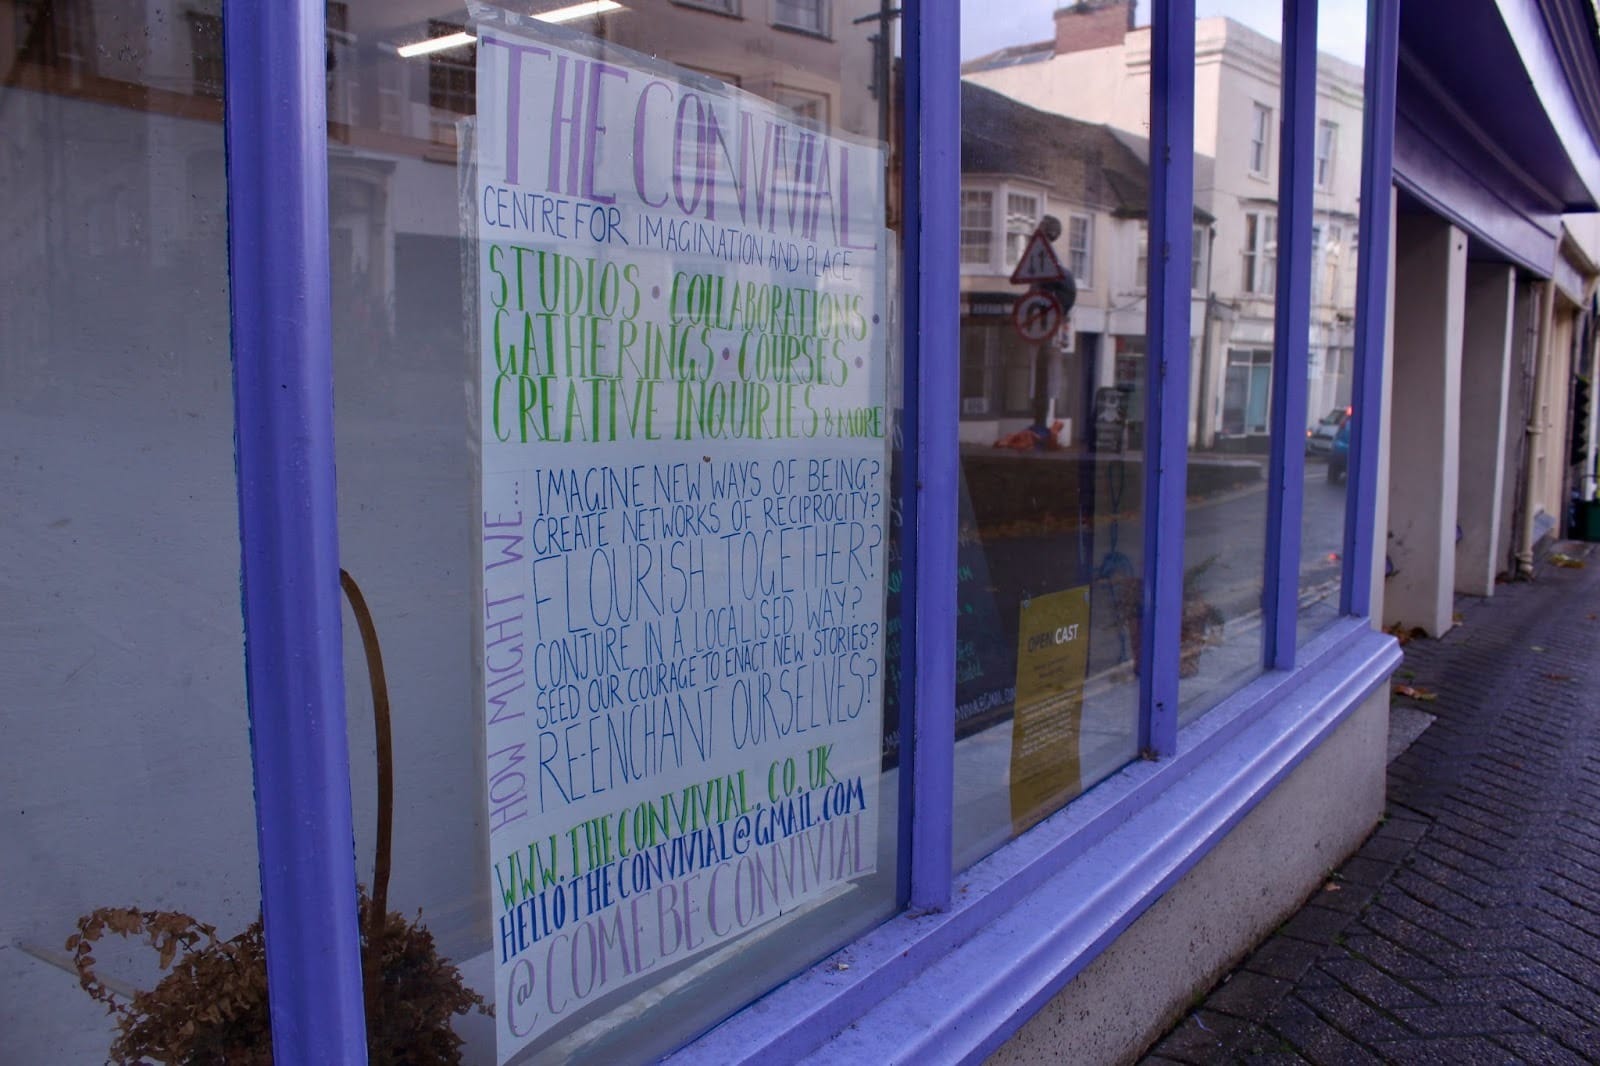 THE CONVIVIAL
CENTRE FOR IMAGINATION AND PLACE
STUDIOS • COLLABORATIONS •
GATHERINGS • COURSES •
CREATIVE INQUIRIES & MORE
HOW MIGHT WE...
IMAGINE NEW WAYS OF BEING?
CREATE NETWORKS OF RECIPROCITY?
FLOURISH TOGETHER?
CONJURE IN A LOCALISED WAY?
SEED OUR COURAGE TO ENACT NEW STORIES?
RE-ENCHANT OURSELVES?
WWW.THECONVIVIAL.CO.UK
HELLOTHECONVIVIAL@GMAIL.COM
@COMEBECONVIVIAL
OPEN CAST